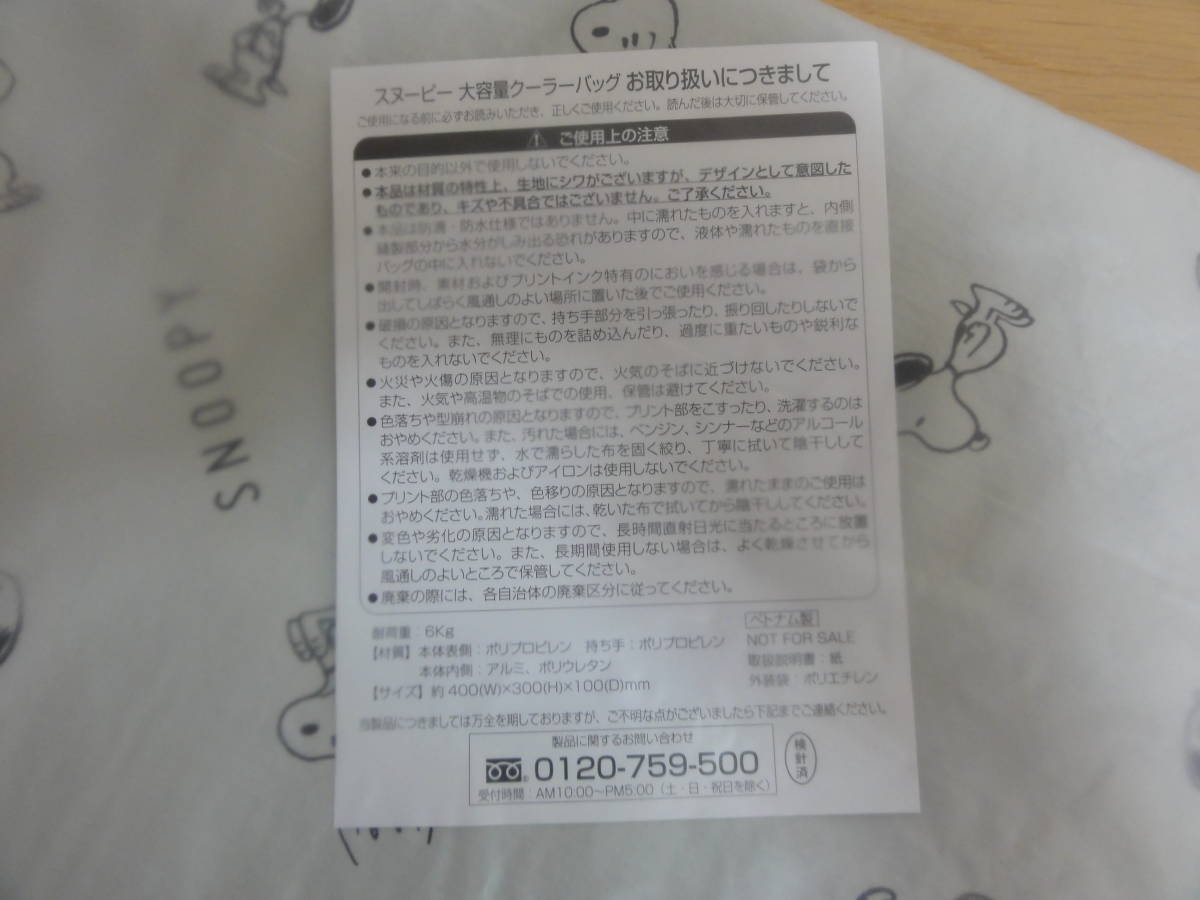 スヌーピー 大容量クーラーバッグ お取り扱いにつきまして
ご使用になる前に必ずお読みいただき、正しくご使用ください。読んだ後は大切に保管してください。
ご使用上の注意
●本来の目的以外で使用しないでください。
●本品は材質の特性上、生地にシワがございますが、デザインとして意図した
ものであり、キズや不具合ではございません。ご了承ください。
●本品は防滴・防水仕様ではありません。中に濡れたものを入れますと、内側
縫製部分から水分がしみ出る恐れがありますので、液体や濡れたものを直接
バッグの中に入れないでください。
●開封時、素材およびプリントインク特有のにおいを感じる場合は、袋から
出してしばらく風通しのよい場所に置いた後でご使用ください。
●破損の原因となりますので、持ち手部分を引っ張ったり、振り回したりしないで
ください。また、無理にものを詰め込んだり、過度に重たいものや鋭利な
ものを入れないでください。
●火災や火傷の原因となりますので、火気のそばに近づけないでください。
また、火気や高温物のそばでの使用、保管は避けてください。
●色落ちや型崩れの原因となりますので、プリント部をこすったり、洗濯するのは
おやめください。また、汚れた場合には、ベンジン、シンナーなどのアルコール
系溶剤は使用せず、水で濡らした布を固く絞り、丁寧に拭いて陰干しして
ください。乾燥機およびアイロンは使用しないでください。
●プリント部の色落ちや、色移りの原因となりますので、濡れたままのご使用は
おやめください。濡れた場合には、乾いた布で拭いてから陰干ししてください。
●変色や劣化の原因となりますので、長時間直射日光に当たるところに放置
しないでください。また、長期間使用しない場合は、よく乾燥させてから
風通しのよいところで保管してください。
●廃棄の際には、各自治体の廃棄区分に従ってください。
耐荷重：6Kg
【材質】本体表側：ポリプロピレン 持ち手：ポリプロピレン
本体内側：アルミ、ポリウレタン
【サイズ】約400(W)×300(H)×100(D)mm
ベトナム製
NOT FOR SALE
取扱説明書：紙
外装袋：ポリエチレン
当製品につきましては万全を期しておりますが、ご不明な点がございましたら下記までご連絡ください。
製品に関するお問い合わせ
0120-759-500
受付時間：AM10:00～PM5:00（土・日・祝日を除く）
検針済
SNOOPY